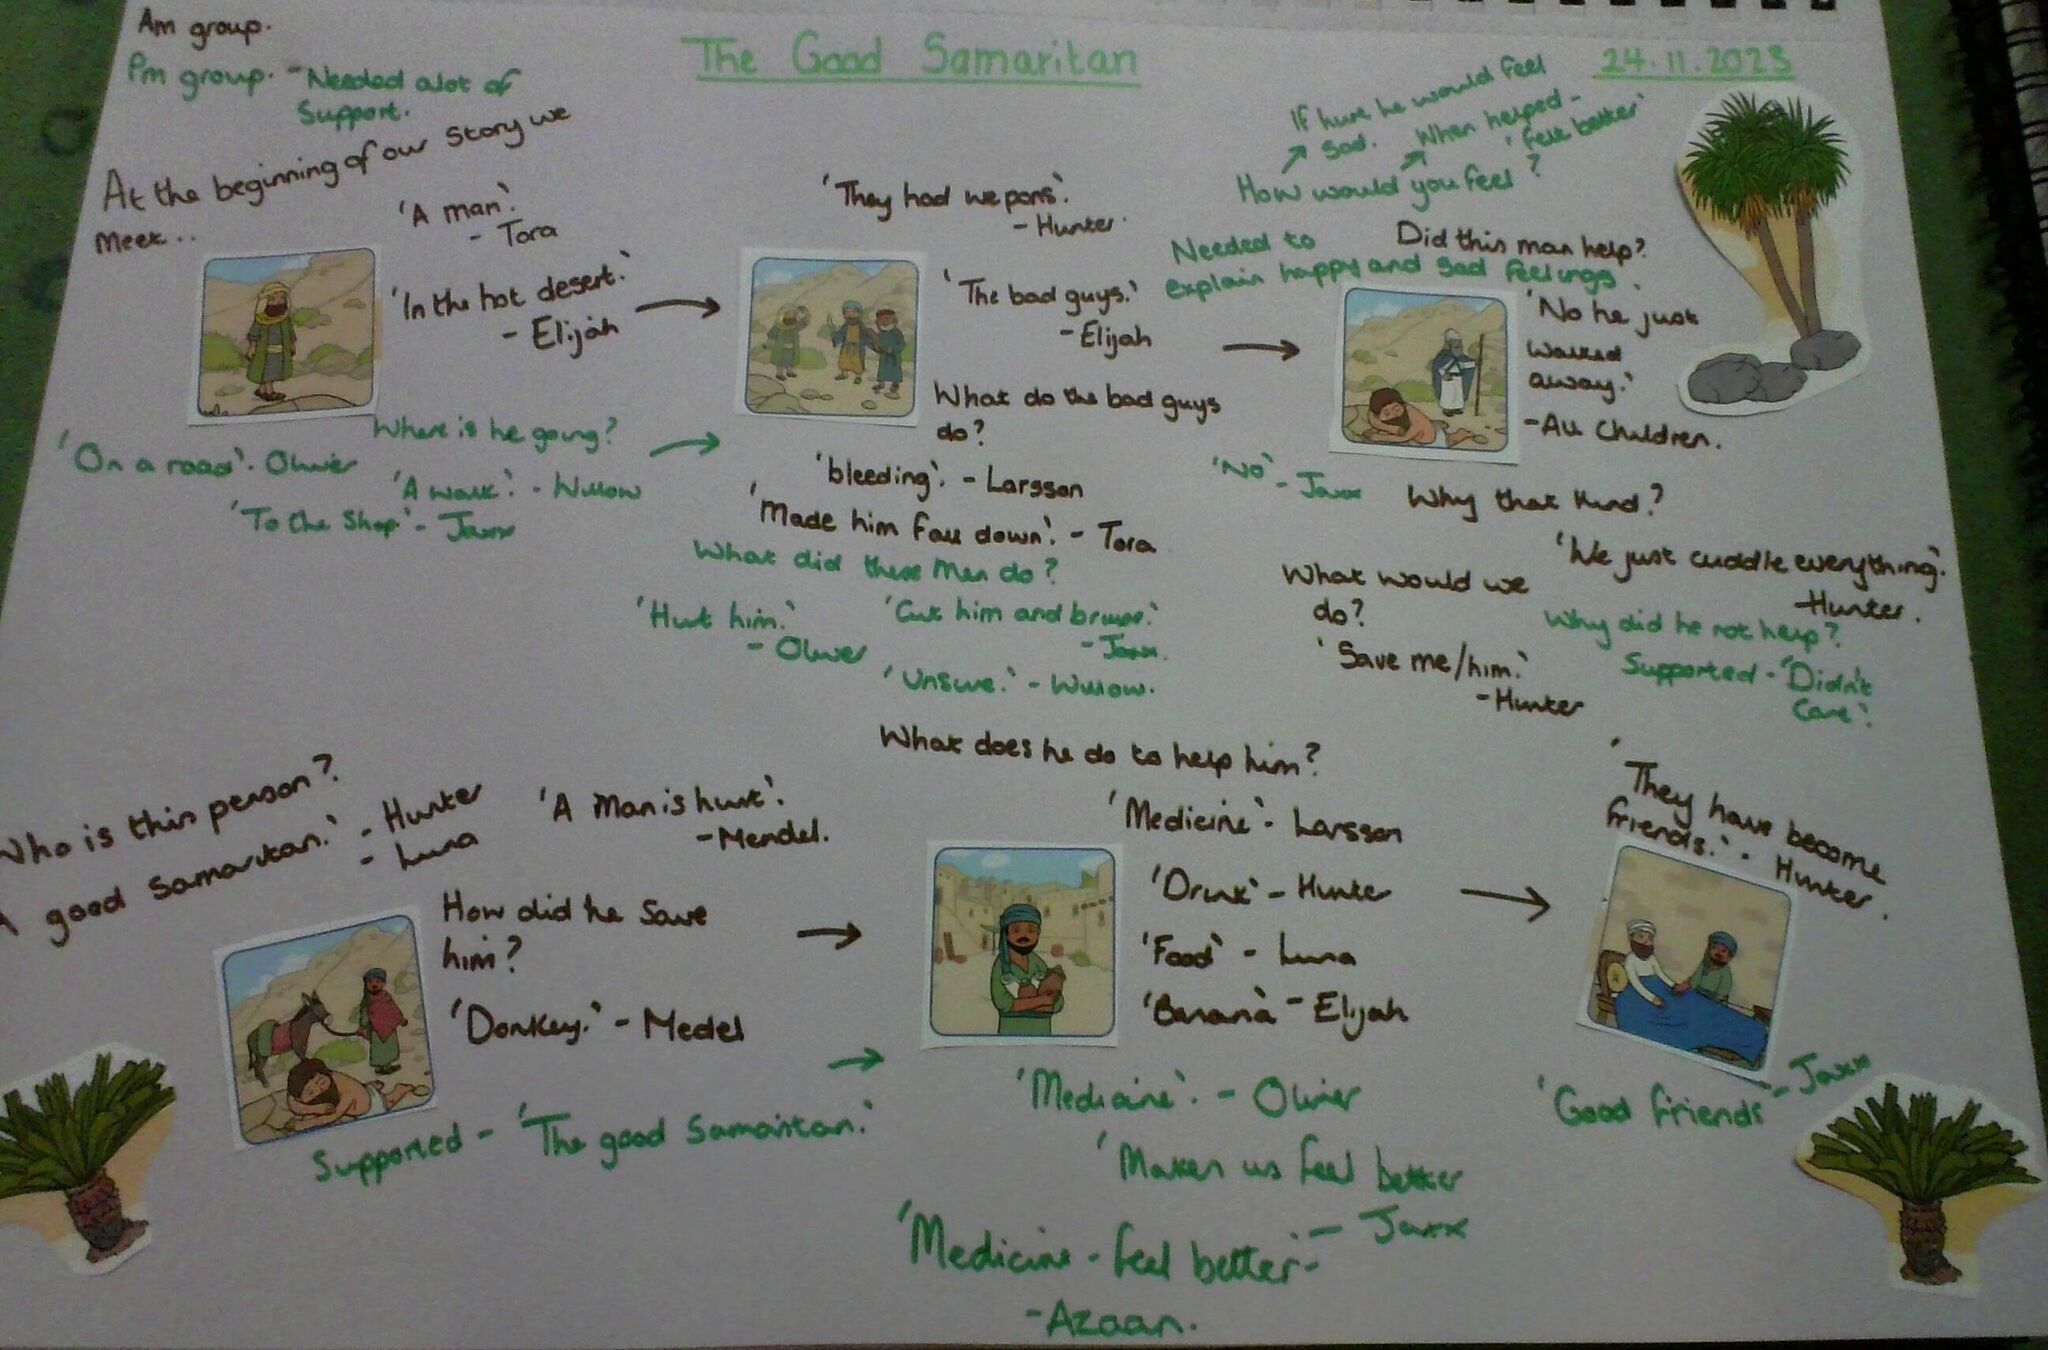 Am group.
Pm group. - Needed alot of
Support.
The Good Samaritan
24.11.2023
At the beginning of our story we
meet...
'A man.'
- Tora
'In the hot desert.'
- Elijah
'They had wepons'.
- Hunter.
'The bad guys.'
- Elijah
If hurt he would feel
sad. When helped -
'felt better'
How would you feel?
Needed to
explain happy and sad feelings.
Did this man help?
'No he just
walked
away.'
- All Children.
Where is he going?
'On a road'. Oliver
'A walk'. - Willow
'To the Shop' - Jaxx
What do the bad guys
do?
'bleeding'. - Larsson
'Made him fall down'. - Tora
What did these men do?
'Hurt him.'
- Oliver
'Cut him and bruise.'
- Jaxx.
'Unsure.' - Willow.
'No' - Jaxx
Why that kind?
'We just cuddle everything'.
- Hunter.
What would we
do?
'Save me/him.'
- Hunter
Why did he not help?
Supported - 'Didn't
Care'.
Who is this person?
A good Samaritan.' - Hunter
- Luna
'A man is hurt'.
- Mendel.
How did he save
him?
'Donkey.' - Medel
Supported - 'The good Samaritan.'
What does he do to help him?
'Medicine' - Larsson
'Drink' - Hunter
'Food' - Luna
'Banana' - Elijah
'Medicine'. - Oliver
'Makes us feel better
- Jaxx
'Medicine - feel better' -
- Azaan.
'They have become
friends.' - Hunter.
'Good friends' - Jaxx